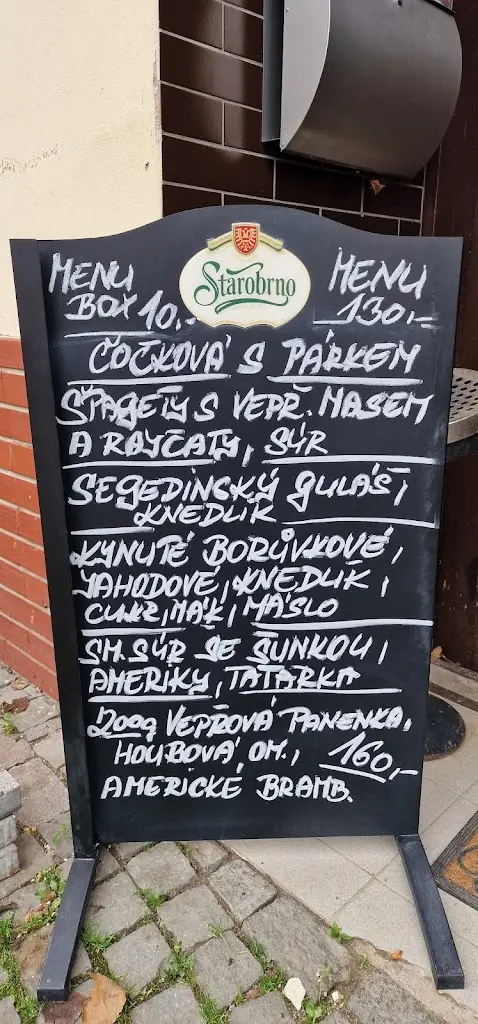 MENU
BOX 10,-
Starobrno
MENU
130,-
ČOČKOVÁ S PÁRKEM
ŠPAGETY S VEPŘ. MASEM
A RAJČATY, SÝR
SEGEDÍNSKÝ GULÁŠ,
KNEDLÍK
KYNUTÉ BORŮVKOVÉ,
JAHODOVÉ, KNEDLÍK,
CUKR, MÁK, MÁSLO
SM. SÝR SE ŠUNKOU,
AMERIKY, TATARKA
200g VEPŘOVÁ PANENKA,
HOUBOVÁ OM., 160,-
AMERICKÉ BRAMB.